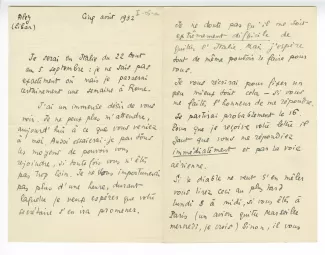 Aley
(Liban)
Cinq août 1932
Je serai en Italie du 22 août
au 5 septembre, je ne sais pas
exactement où mais je passerai
certainement une semaine à Rome.
J'ai un immense désir de vous
voir. Je ne peux plus m'attendre,
aujourd'hui à ce que vous veniez
à moi. Aussi essaierai-je par tous
les moyens de pouvoir vous
rejoindre, si toutefois vous n'êtes
pas trop loin. Je ne vous importunerai
pas plus d'une heure, durant
laquelle je veux espérer que votre
secrétaire s'en ira promener.
Je ne doute pas qu'il me soit
extrêmement difficile de
quitter l'Italie, mais j'espère
tout de même pouvoir le faire pour
vous.
Je vous récrirai pour fixer un
peu mieux tout cela - si vous
me faites l'honneur de me répondre.
Je partirai probablement le 16.
Pour que je reçoive votre lettre il
faut que vous me répondiez
immédiatement et par la voie
aérienne.
Si le diable ne veut s'en mêler
vous lirez ceci au plus tard
lundi 8 à midi, si vous êtes à
Paris (un avion quitte Marseille
mercredi, je crois) Sinon, il vous